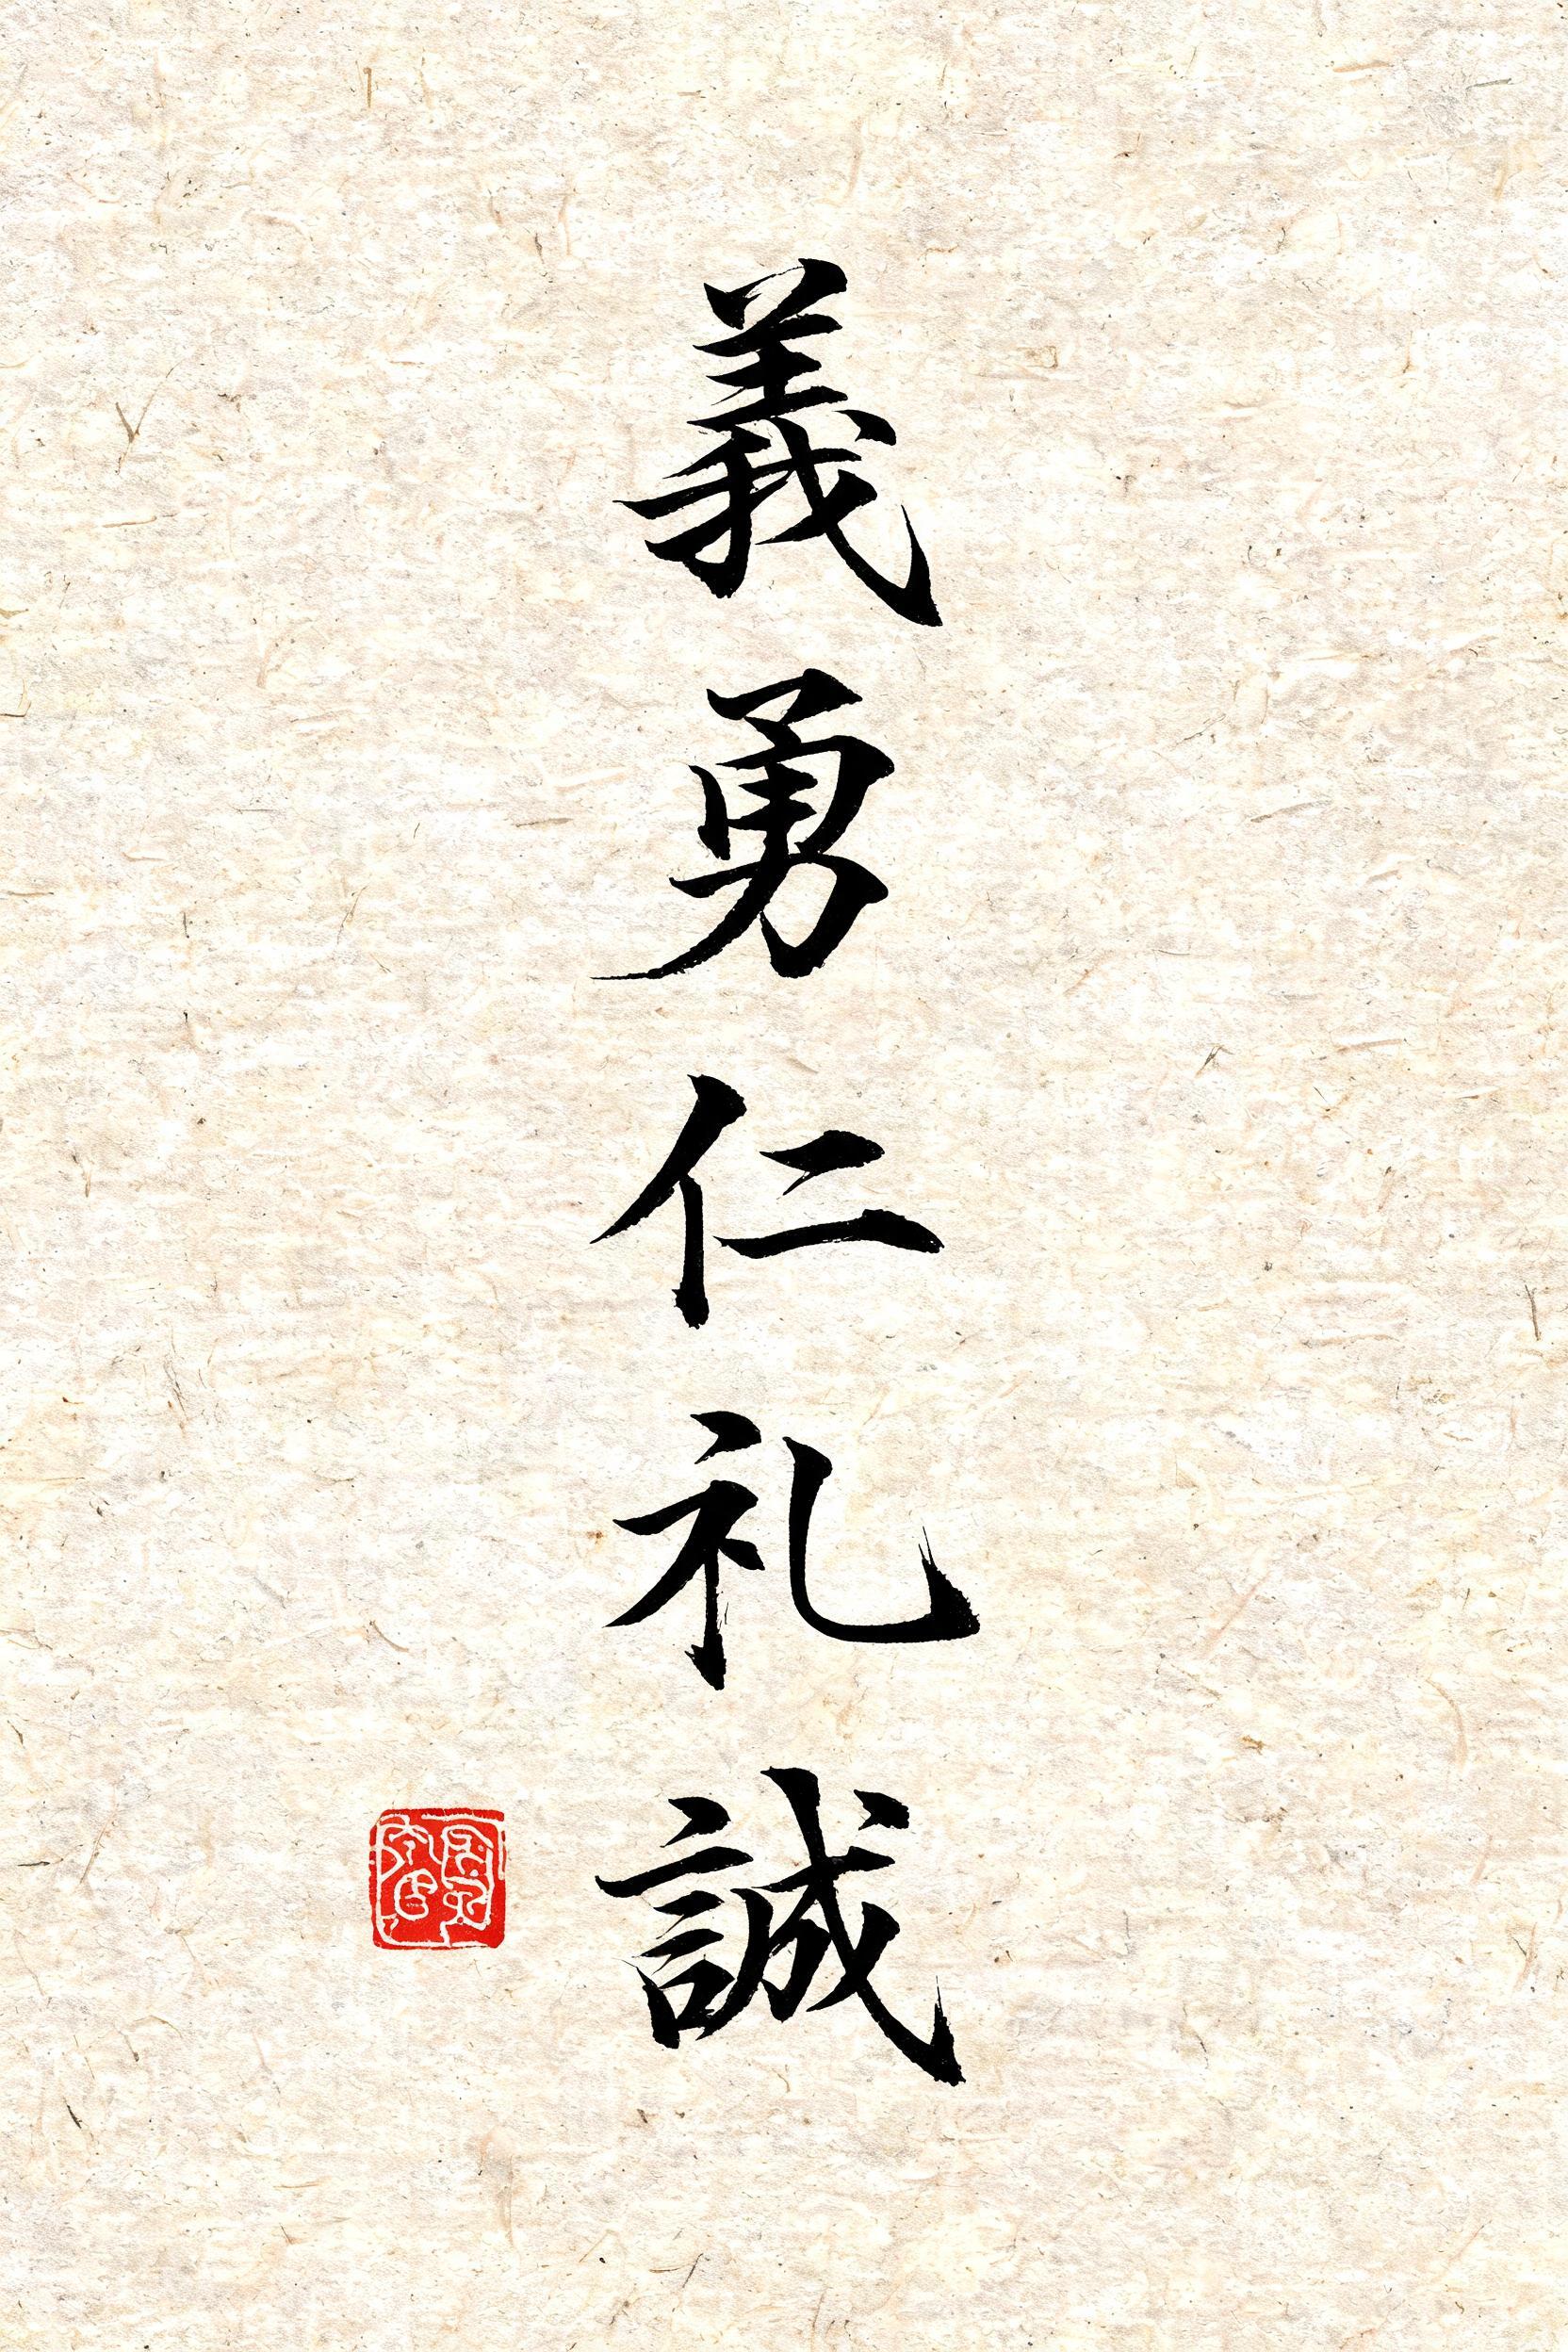 義勇仁礼誠